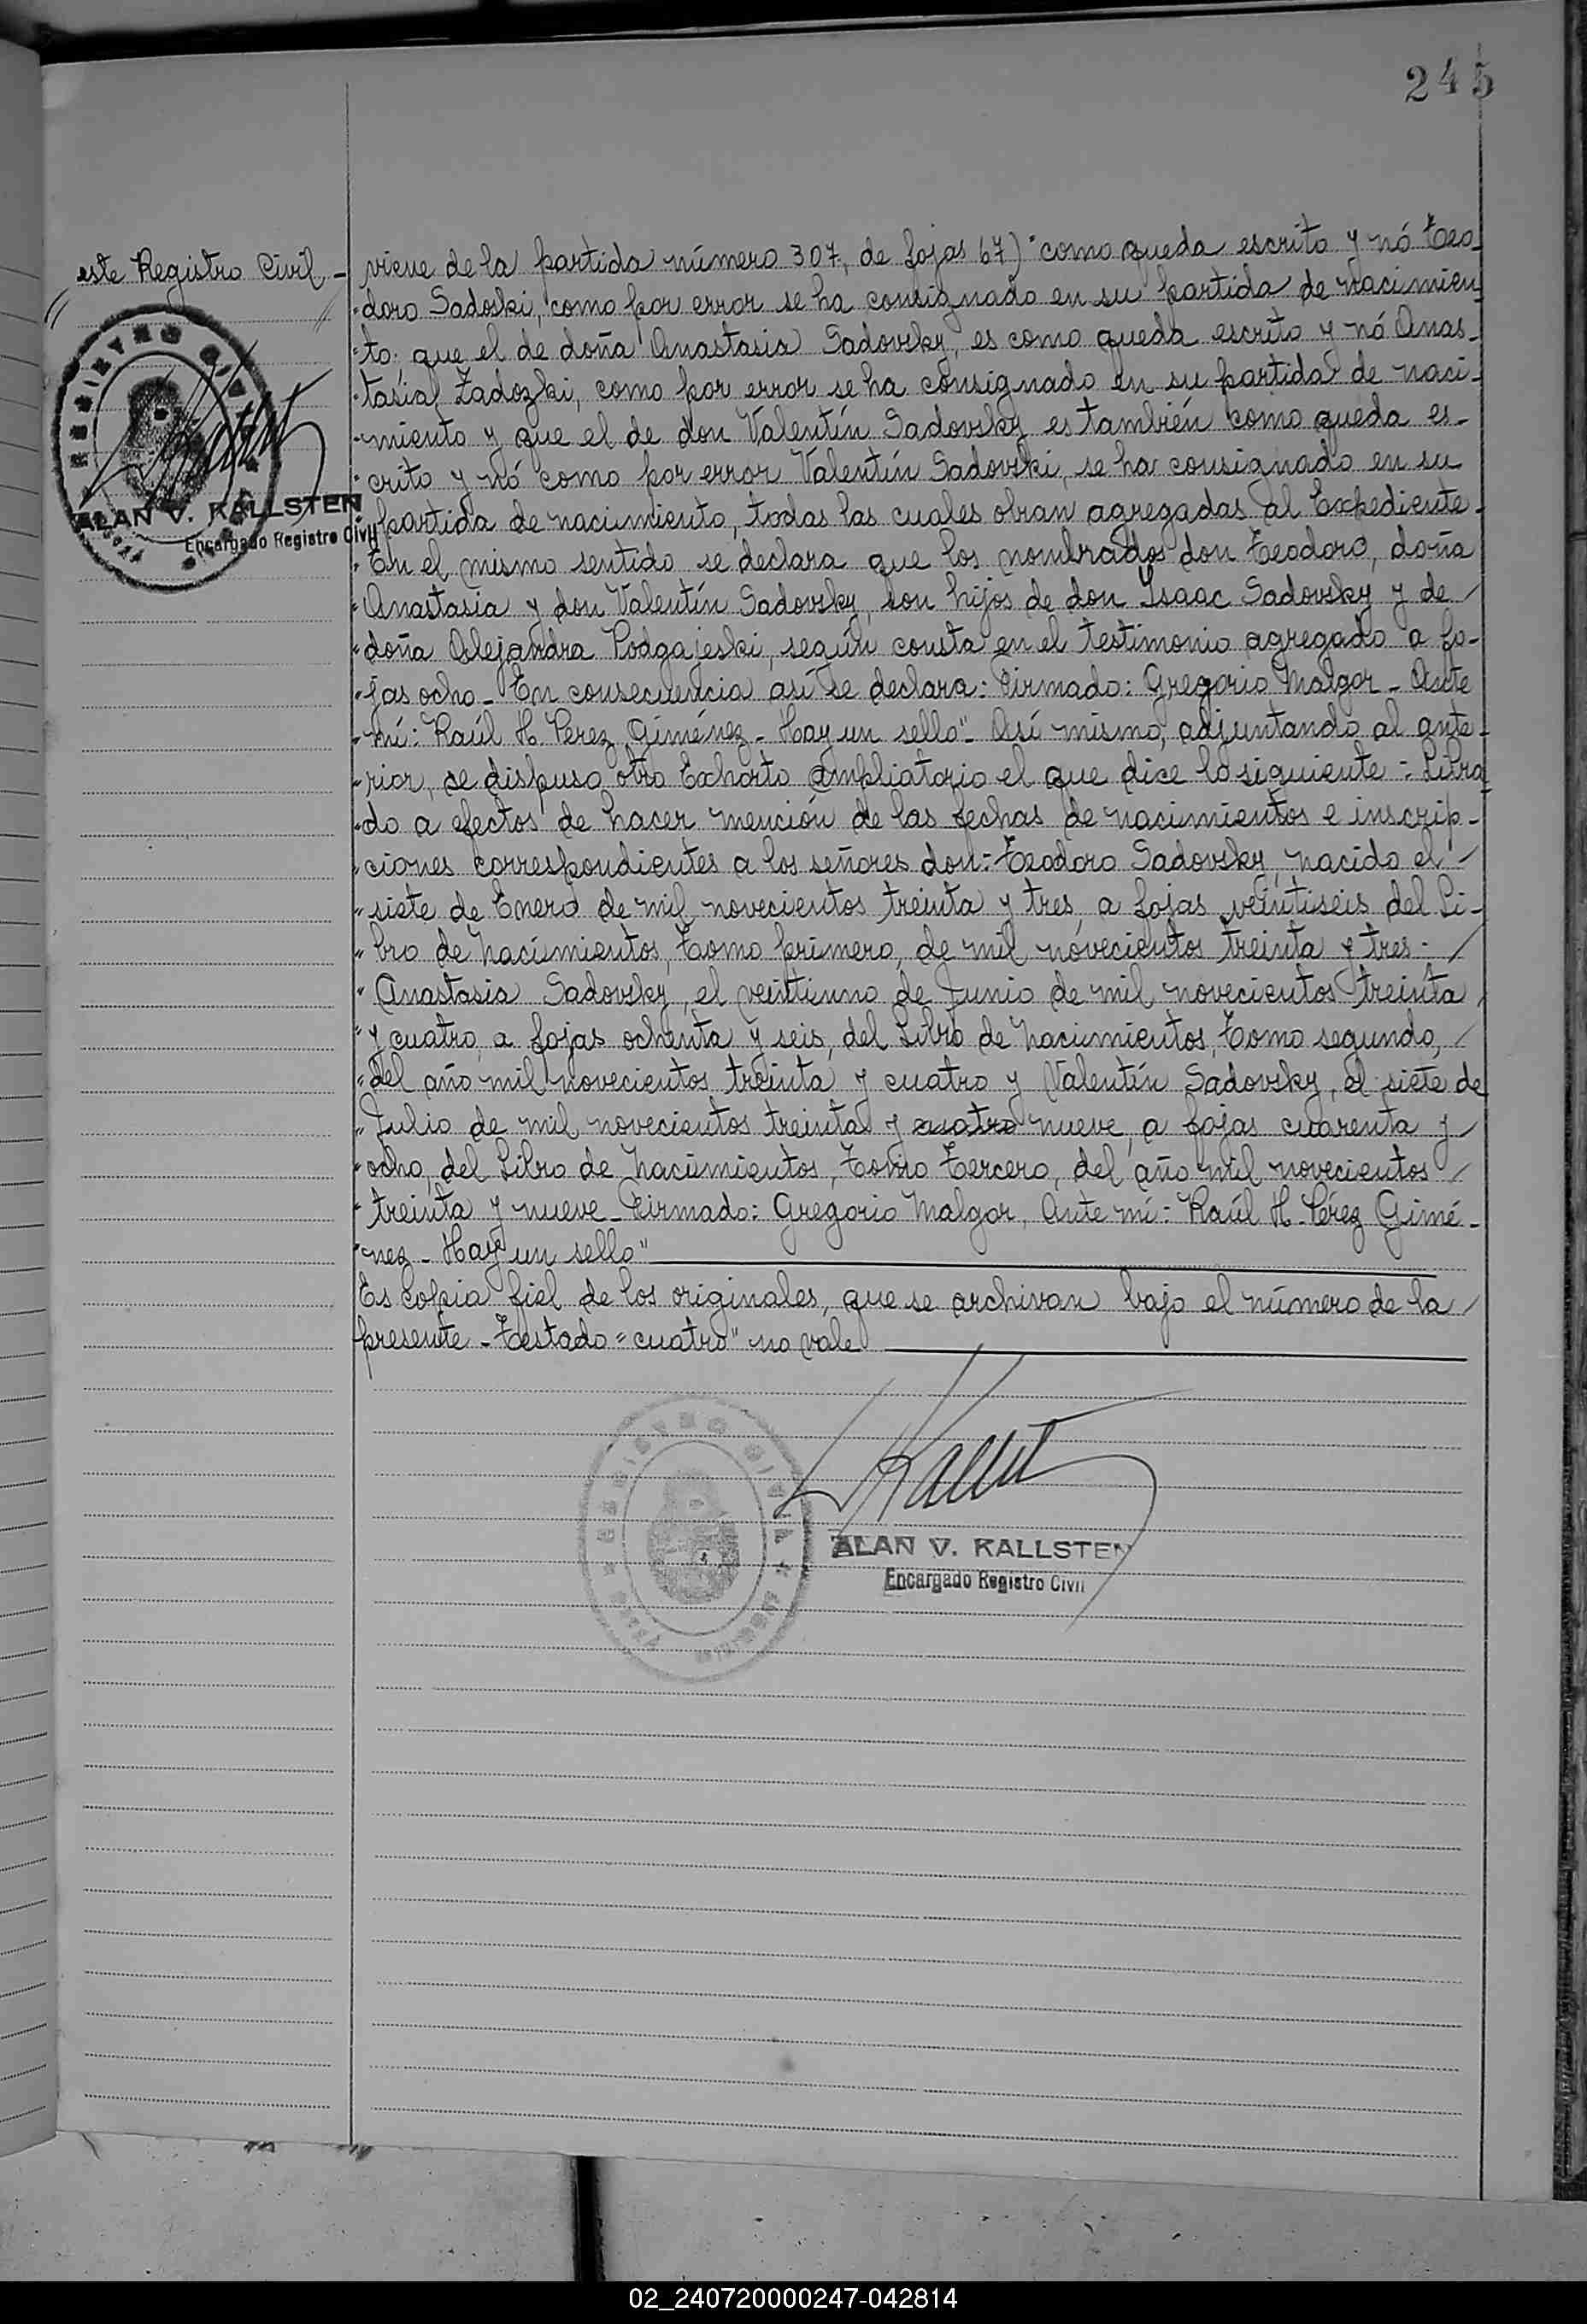 245
este Registro Civil -
ALAN V. KALLSTEN
Encargado Registro Civil
viene de la partida número 307, de fojas 67) "como queda escrito y nó Teo-
"doro Sadoski, como por error se ha consignado en su partida de nacimien-
"to; que el de doña Anastasia Sadovsky, es como queda escrito y nó Anas-
"tasia Zadozki, como por error se ha consignado en su partida de naci-
"miento y que el de don Valentín Sadovsky es también como queda es-
"crito y nó como por error Valentín Sadovski, se ha consignado en su
"partida de nacimiento, todas las cuales obran agregadas al Expediente-
"En el mismo sentido se declara que los nombrados don Teodoro, doña
"Anastasia y don Valentín Sadovsky, son hijos de don Isaac Sadovsky y de /
"doña Alejandra Podgajeski, según consta en el testimonio agregado a fo-
"jas ocho - En consecuencia así se declara: Firmado: Gregorio Malgor - Ante
"mí: Raúl H. Pérez Giménez - Hay un sello" - Así mismo, adjuntando al ante-
"rior, se dispuso otro Exhorto ampliatorio el que dice lo siguiente: Libra
"do a efectos de hacer mención de las fechas de nacimientos e inscrip-
"ciones correspondientes a los señores don: Teodoro Sadovsky, nacido el /
"siete de Enero de mil novecientos treinta y tres, a fojas veintiseis del Li-
"bro de Nacimientos, Tomo primero, de mil novecientos treinta y tres - /
"Anastasia Sadovsky, el veintiuno de Junio de mil novecientos treinta /
"y cuatro, a fojas ochenta y seis, del Libro de Nacimientos, Tomo segundo, /
"del año mil novecientos treinta y cuatro y Valentín Sadovsky, el siete de
"Julio de mil novecientos treinta y cuatro nueve, a fojas cuarenta y /
"ocho, del Libro de Nacimientos, Tomo Tercero, del año mil novecientos /
"treinta y nueve - Firmado: Gregorio Malgor, Ante mí: Raúl H. Pérez Gimé-
"nez - Hay un sello"
Es copia fiel de los originales, que se archivan bajo el número de la /
presente - Testado = cuatro" no vale
ALAN V. KALLSTEN
Encargado Registro Civil
02_240720000247-042814